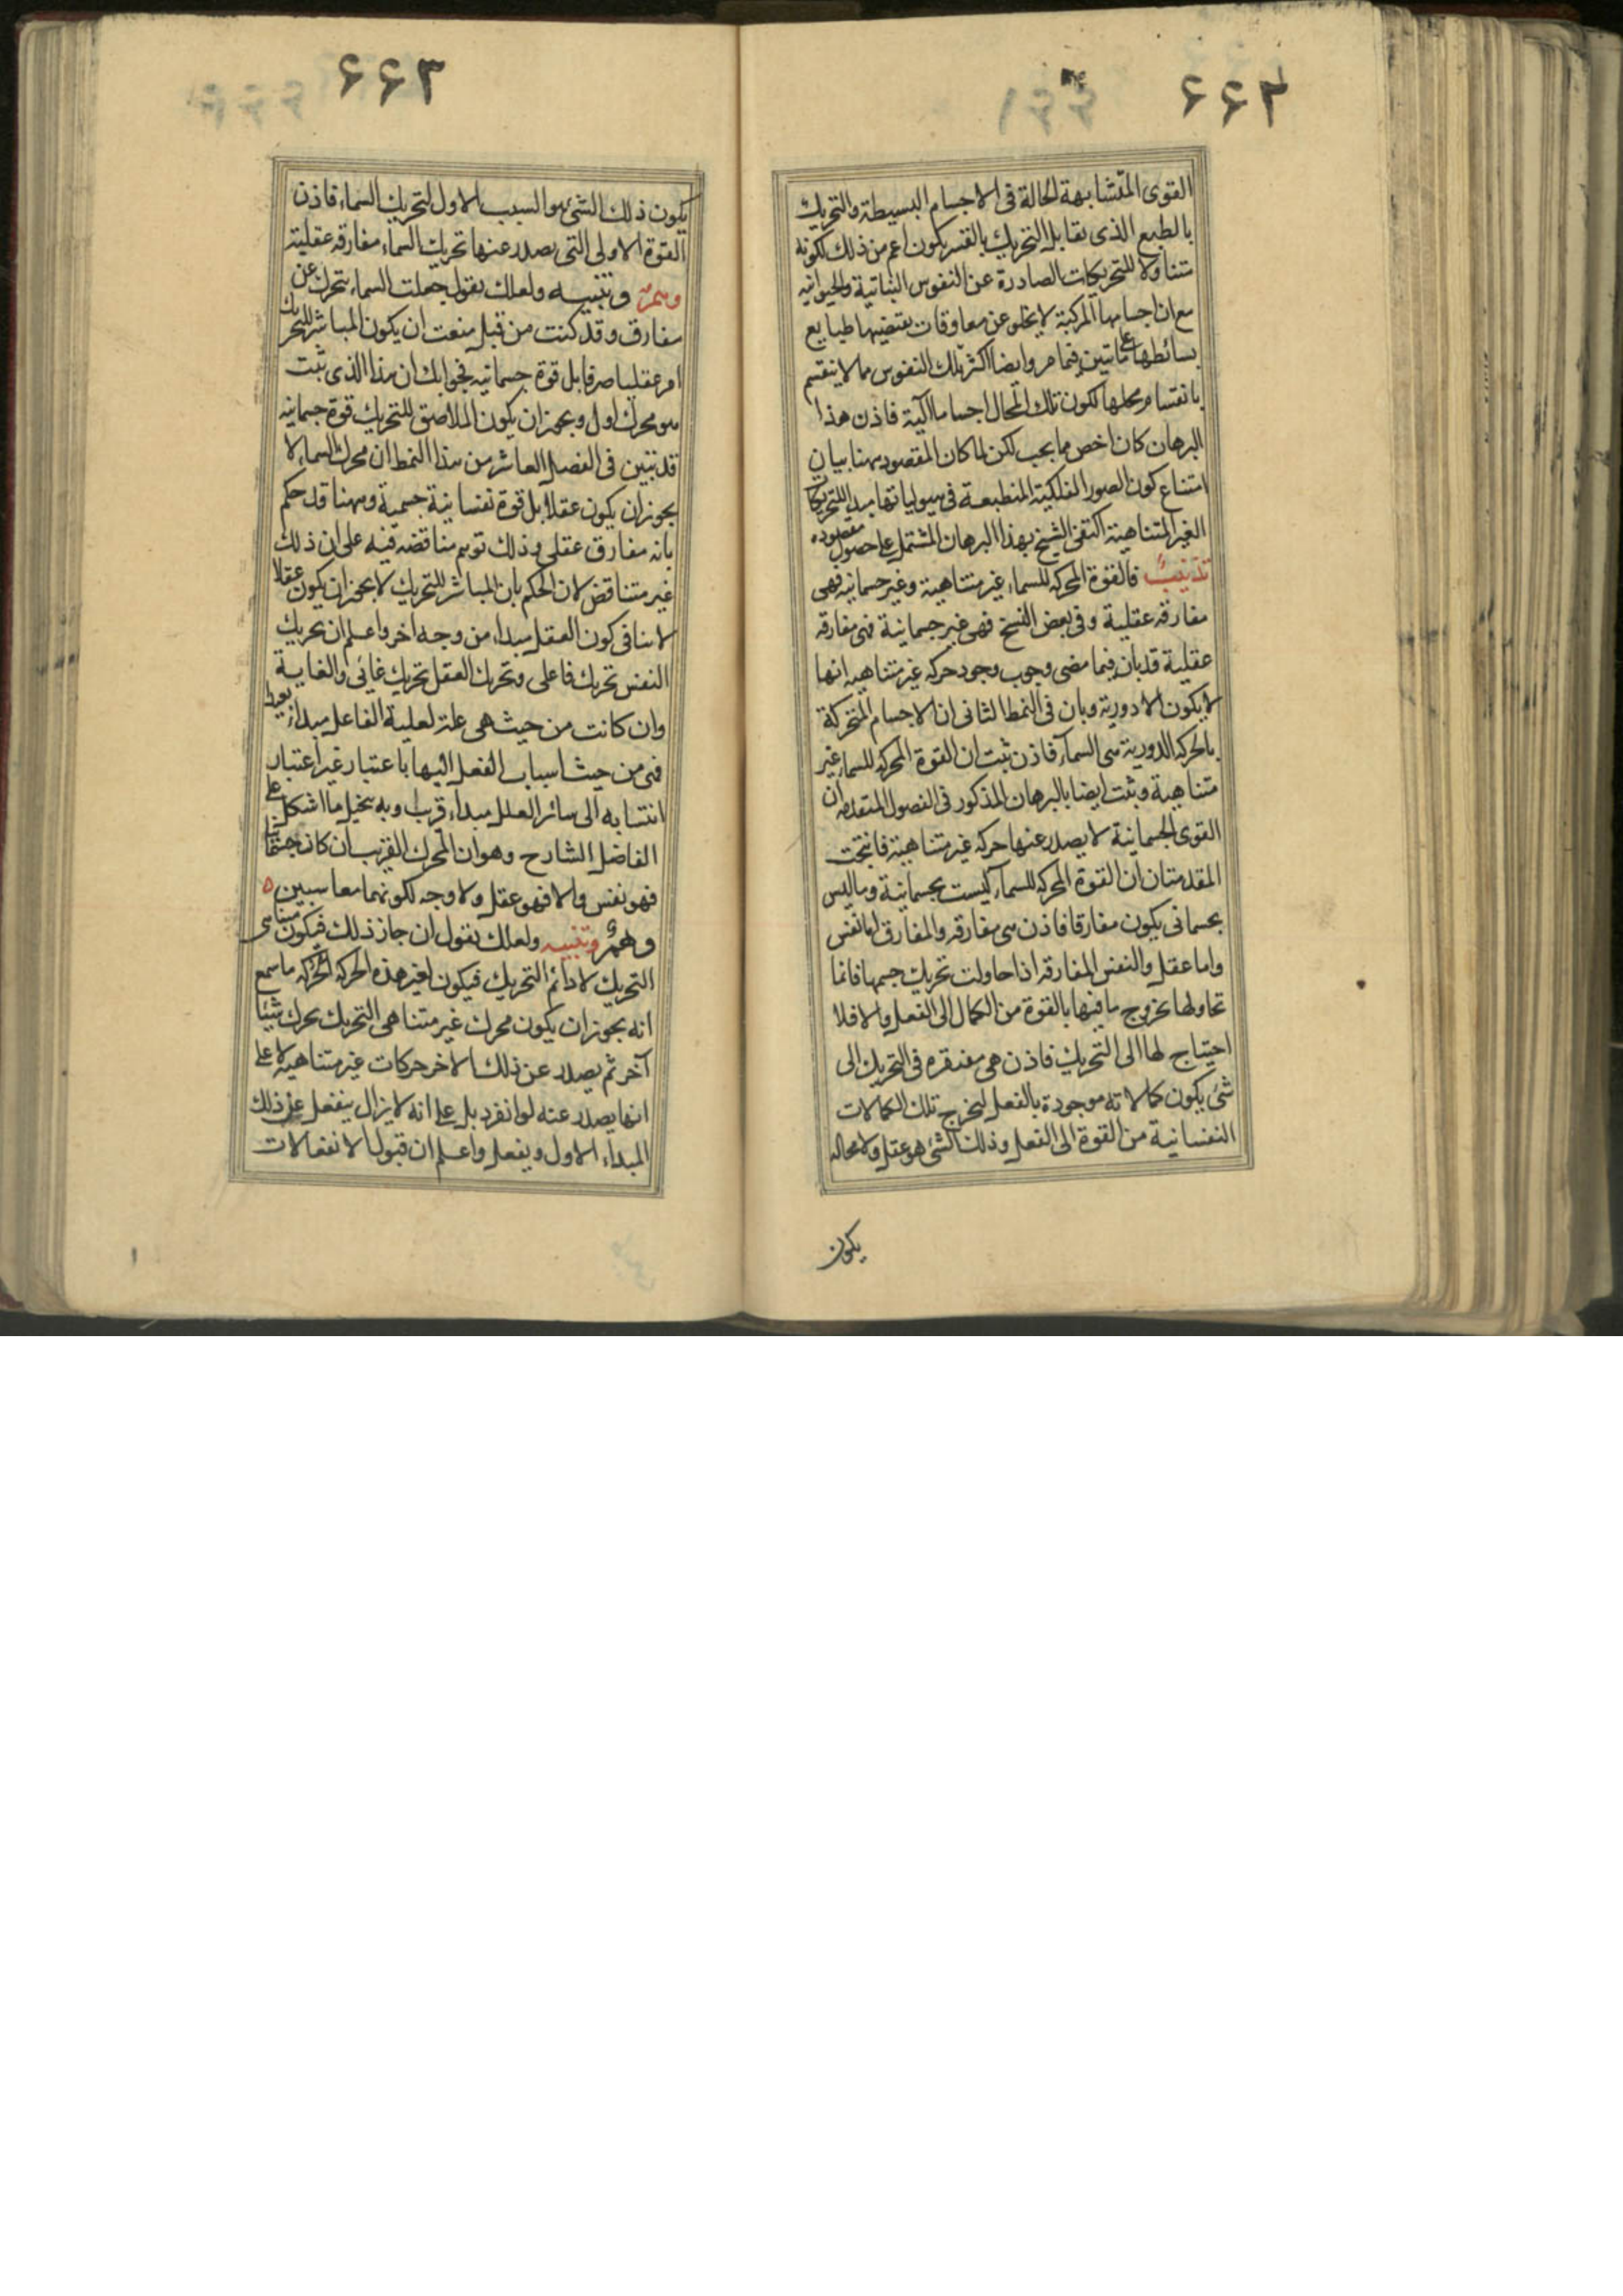 ٤٤٢
القوى المتشابهة الحالة فى الاجسام البسيطة والتحريك
بالطبع الذى يقابل التحريك بالقسر يكون اعم من ذلك لكونه
متناولا للتحريكات الصادرة عن النفوس النباتية والحيوانيه
مع ان اجسامها المركبة لا يخلو عن معاوقات يقتضيها طبايع
بسائطها على ماتبين فيما مر وايضا اكثر تلك النفوس مما لا ينقسم
بانقسام محلها لكون تلك المحال اجساما آلية فاذن هذا
البرهان كان اخص مما يجب لكن لما كان المقصود ههنا بيان
امتناع كون الصور الفلكية المنطبعة فى هيولياتها مبدا للتحريكات
الغير المتناهية اكتفى الشيخ بهذا البرهان المشتمل على حصول مقصوده
تذنيب فالقوة المحركه للسماء غير متناهية وغير جسمانيه فهى
مفارقه عقلية وفى بعض النسخ فهى غير جسمانية فهى مفارقه
عقلية قد بان فيما مضى وجوب وجود حركه غير متناهيه انها
لا يكون الا دورية وبان فى النمط الثانى ان الاجسام المتحركة
بالحركه الدورية هى السمآء فاذن ثبت ان القوة المحركه للسماء غير
متناهية وثبت ايضا بالبرهان المذكور فى الفصول المتقدمه ان
القوى الجسمانية لا يصدر عنها حركه غير متناهية فانتجت
المقدمتان ان القوة المحركه للسمآء ليست بجسمانية وما ليس
بجسمانى يكون مفارقا فاذن هى مفارقه والمفارق اما نفس
واما عقل والنفس المفارقه اذا حاولت تحريك جسمها فانما
تحاولها بخروج ما فيها بالقوة من الكمال الى الفعل والا فلا
احتياج لها الى التحريك فاذن هى مفتقره فى التحريك الى
شئ يكون كمالاته موجودة بالفعل ليخرج تلك الكمالات
النفسانية من القوة الى الفعل وذلك الشئ هو عقل ولا محاله
يكون
٤٤٣
يكون ذلك الشئ هو السبب الاول لتحريك السماء فاذن
القوة الاولى التى يصدر عنها تحريك السمآء مفارقه عقلية
وهم وتنبيه ولعلك يقول جعلت السماء يتحرك عن
مفارق وقد كنت من قبل منعت ان يكون المباشر للتحريك
امر عقليا صرفا بل قوة جسمانيه فجوابك ان هذا الذى ثبت
هو محرك اول ويجوز ان يكون الملاصق للتحريك قوة جسمانيه
قد تبين فى الفصل العاشر من هذا النمط ان محرك السماء لا
يجوز ان يكون عقلا بل قوة نفسانية جسمية وههنا قد حكم
بانه مفارق عقلى وذلك توهم مناقضه فنبه على ان ذلك
غير متناقض لان الحكم بان المباشر للتحريك لا يجوز ان يكون عقلا
لا ينافى كون العقل مبداء من وجه اخر واعلم ان تحريك
النفس تحريك فاعلى وتحريك العقل تحريك غائى والغاية
وان كانت من حيث هى علة لعلية الفاعل مبداء بعيدا
فهى من حيث اسباب الفعل اليها باعتبار غير اعتبار
انتسابه الى سائر العلل مبداء قريب وبه ينحل ما اشكل على
الفاضل الشارح وهو ان المحرك القريب ان كان جسمانيا
فهو نفس والا فهو عقل ولا وجه لكونهما معا سببين ه
وهم وتنبيه ولعلك يقول ان جاز ذلك فيكون متناهى
التحريك لا دائم التحريك فيكون لغير هذه الحركه المحركه ما سمع
انه يجوز ان يكون محرك غير متناهى التحريك يحرك شيئا
آخر ثم يصدر عن ذلك الاخر حركات غير متناهية لا على
انها يصدر عنه لو انفرد بل على انه لا يزال ينفعل عن ذلك
المبداء الاول ويفعل واعلم ان قبول الانفعالات